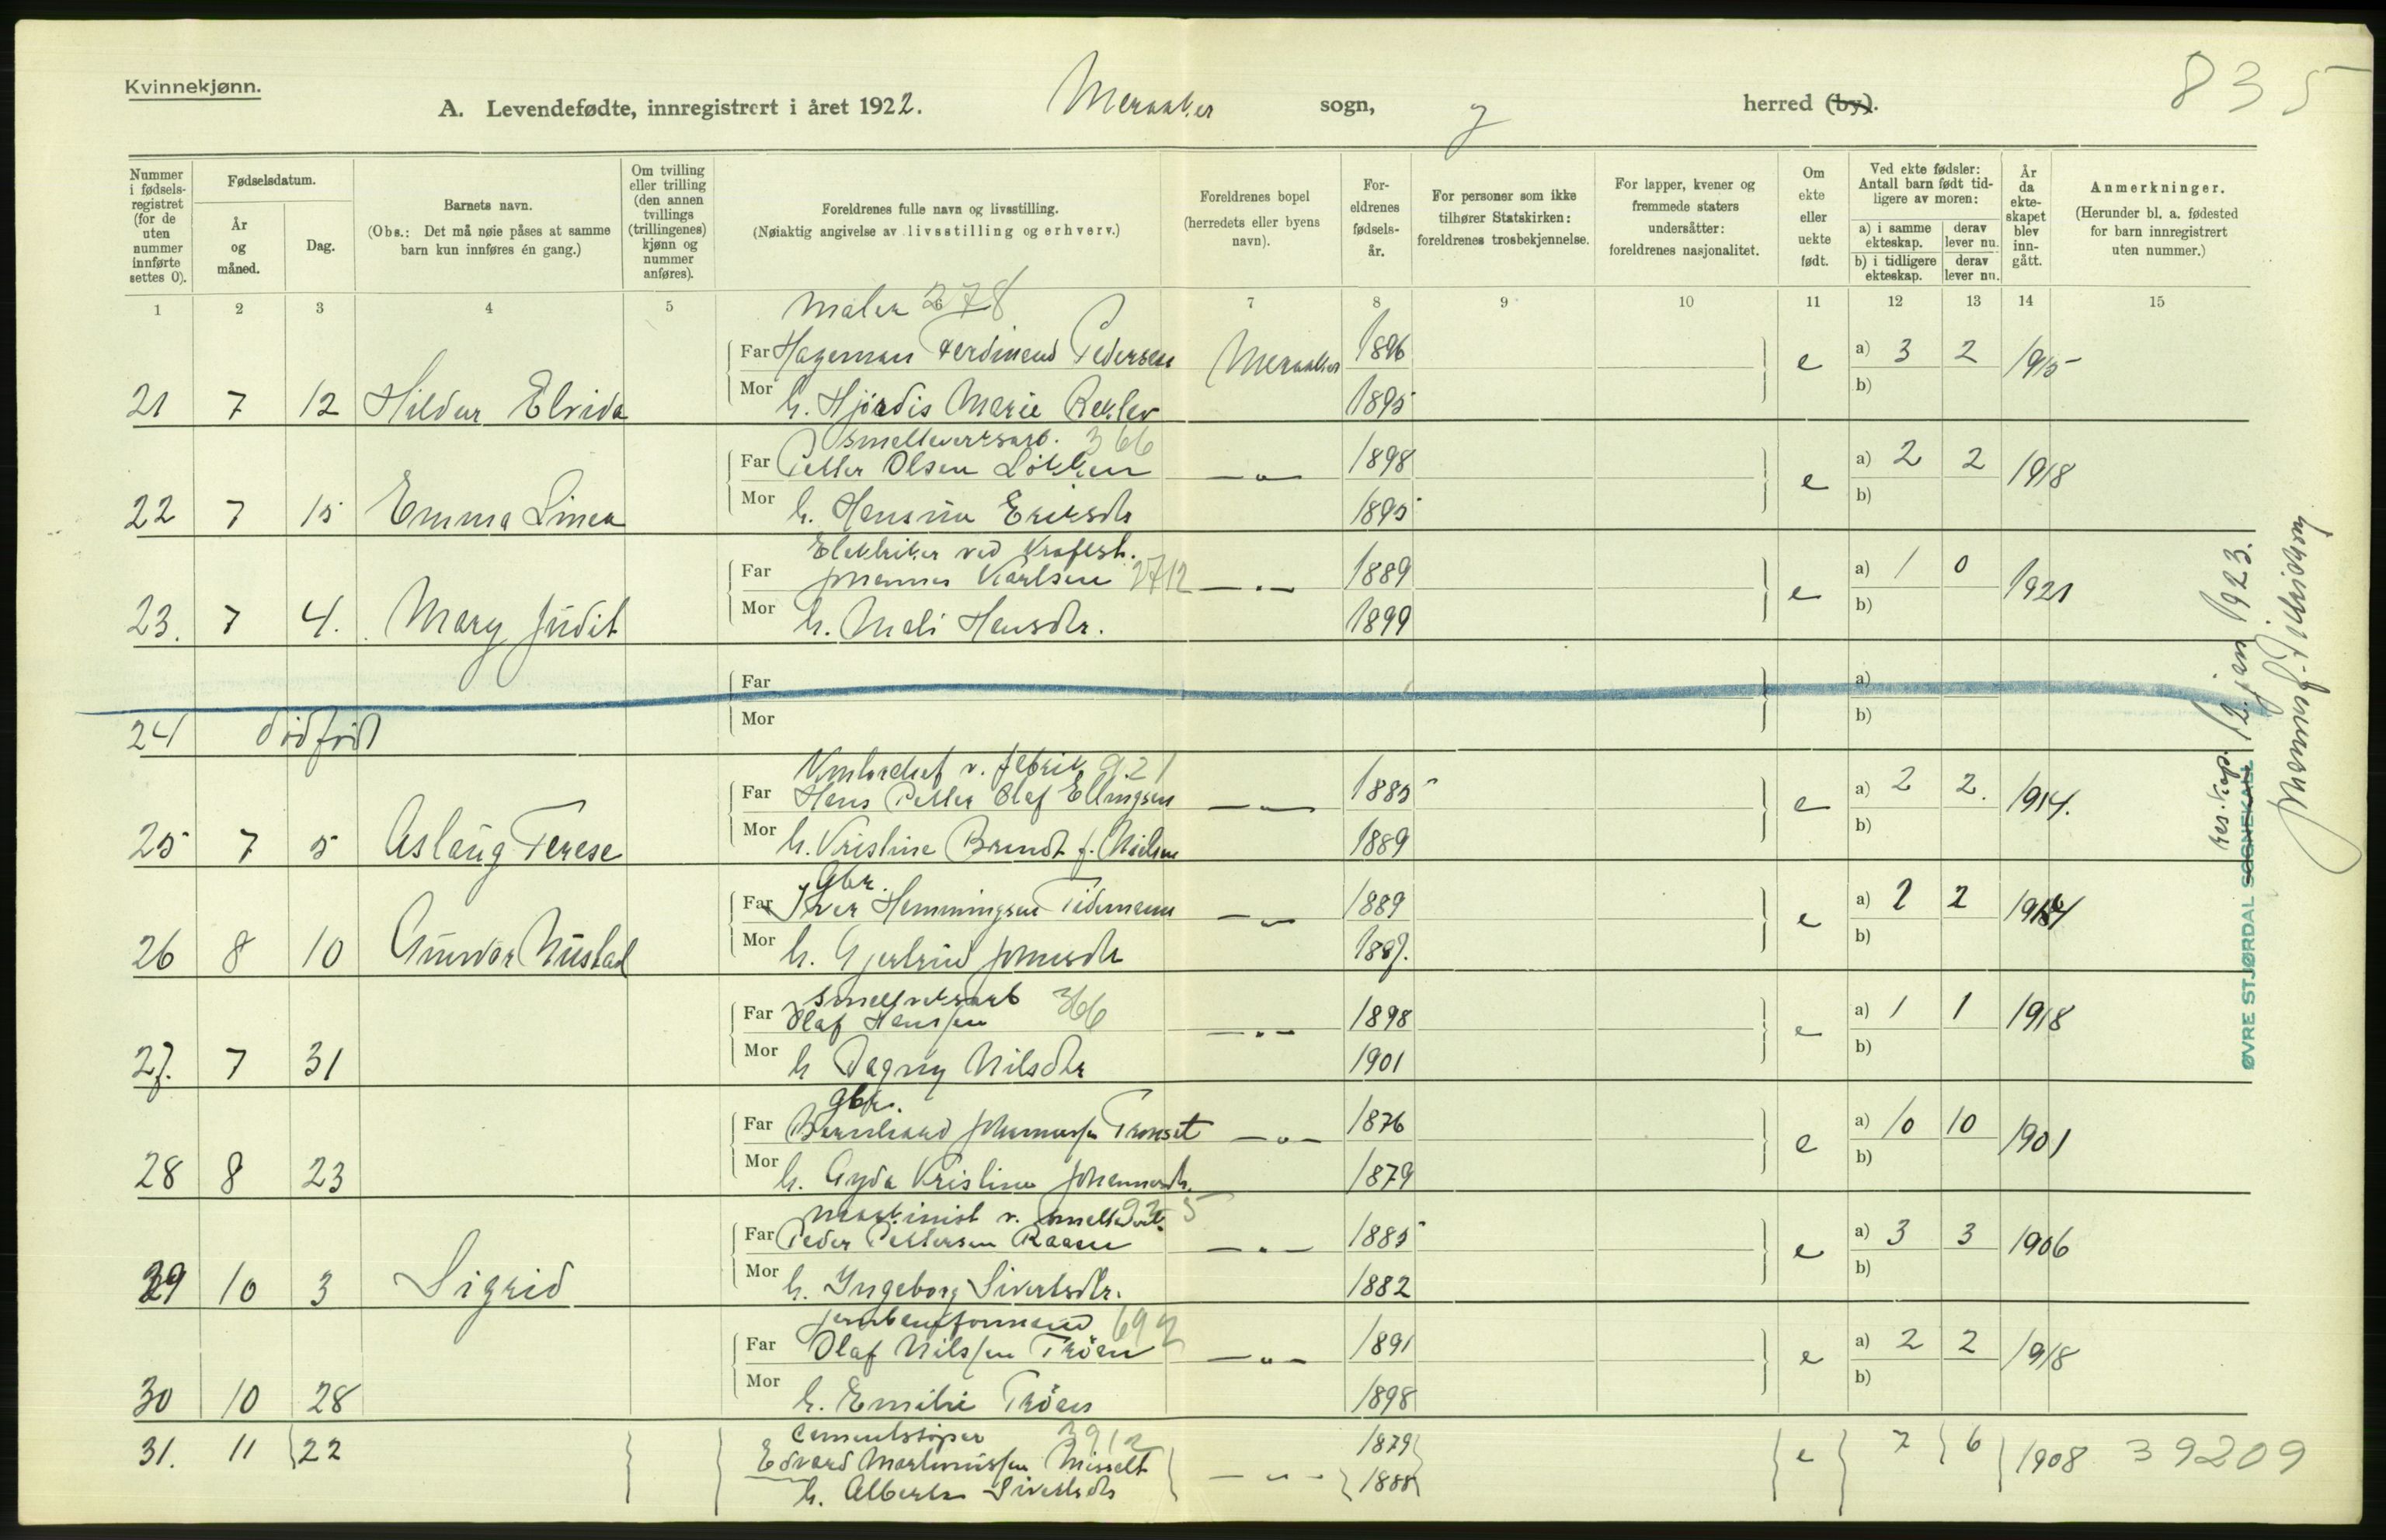 Kvinnekjønn.
835
A. Levendefødte, innregistrert i året 1922. Meraaker sogn, " herred (by).
Nummer i fødselsregistret (for de uten nummer innførte settes 0).
Fødselsdatum.
År og måned.
Dag.
Barnets navn.
(Obs.: Det må nøie påses at samme barn kun innføres én gang.)
Om tvilling eller trilling (den annen tvillings (trillingenes) kjønn og nummer anføres).
Foreldrenes fulle navn og livsstilling.
(Nøiaktig angivelse av livsstilling og erhverv.)
Foreldrenes bopel
(herredets eller byens navn).
Foreldrenes fødselsår.
For personer som ikke tilhører Statskirken: foreldrenes trosbekjennelse.
For lapper, kvener og fremmede staters undersåtter: foreldrenes nasjonalitet.
Om ekte eller uekte født.
Ved ekte fødsler: Antall barn født tidligere av moren:
a) i samme ekteskap.
derav lever nu.
b) i tidligere ekteskap.
derav lever nu.
År da ekteskapet blev inngått.
Anmerkninger.
(Herunder bl. a. fødested for barn innregistrert uten nummer.)
1 2 3 4 5 6 7 8 9 10 11 12 13 14 15
Maler 278
Far Hageman Ferdinand Pedersen Meraaker 1896 e a) 3 2 1915
21 7 12 Hildur Elvida Mor h. Hjørdis Marie 1895 b)
Smelteverksarb. 366
Far Petter Olsen Løkken — " — 1898 e a) 2 2 1918
22 7 15 Emma Linea Mor h. Hansine Eriksdtr 1895 b)
Elektriker ved Kraftst.
Far Johannes Karlsen 2712 — " — 1889 e a) 1 0 1921
23. 7 4. Mary Judit Mor h. Mali Hansdtr. 1899 b)
Far a)
24 dødfødt Mor b)
Kontorchef v. fabrik 921
Far Hans Petter Olaf Ellingsen — " — 1885 e a) 2 2. 1914.
25 7 5 Aslaug Terese Mor h. Kristine Brandt f. Nielsen 1889 b)
Gbr.
Far Iver Hemmingsen Tidemann — " — 1889 e a) 2 2
26 8 10 Gunvor Nustad Mor h. Gjertrud Johnsdtr 1887. b)
Smelteverksarb 366
Far Olaf Hanssen — " — 1898 e a) 1 1 1918
27. 7 31 Mor h Dagny Nilsdtr 1901 b)
Gbr.
Far Bernhard Johannessen Tronset — " — 1876 e a) 10 10 1901
28 8 23 Mor h. Gyda Kristine Johannesdtr. 1879 b)
Maskinist v. Smelteverk. 935
Far Peder Pettersen Raaen — " — 1885 e a) 3 3 1906
29 10 3 Sigrid Mor h. Ingeborg Sivertsdtr. 1882 b)
Jernbaneformand 692
Far Olaf Nilssen Trøen — " — 1891 e a) 2 2 1918
30 10 28 Mor h. Emilie Trøen 1898 b)
Cementstøper 3912
31. 11 22 Edvard Martinussen — " — 1879 e 7 6 1908 39209
h. Alberte Sivertsdtr 1888
ØVRE STJØRDAL SOGNEKALL res. kap. 12. jan 1923.